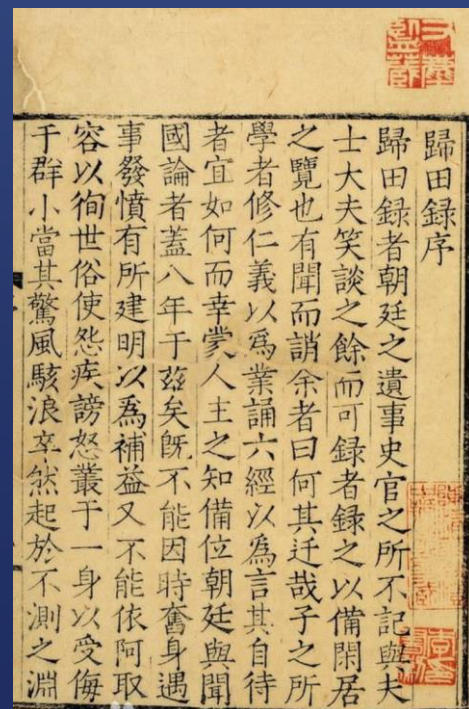 歸田録序
歸田録者朝廷之遺事史官之所不記與夫
士大夫笑談之餘而可録者録之以備閑居
之覽也有聞而誚余者曰何其迂哉子之所
學者修仁義以爲業誦六經以爲言其自待
者宜如何而幸蒙人主之知備位朝廷與聞
國論者蓋八年于兹矣既不能因時奮身遇
事發憤有所建明以爲補益又不能依阿取
容以徇世俗使怨疾謗怒叢于一身以受侮
于群小當其驚風駭浪卒然起於不測之淵